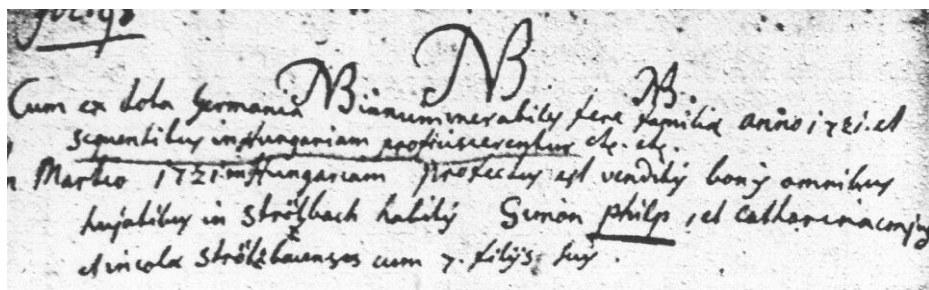 NB NB NB.
Cum ex tota Germania innumerabiles fere familiae anno 1721. et
sequentibus in Hungariam proficiscerentur etc. etc.
Martio 1721. in Hungariam profectus est venditis bonis omnibus
hujatibus in Strötzbach habitis Simon Philp, et Catharina conjug
et incolae Strötzbacenses cum 7. filijs suis.